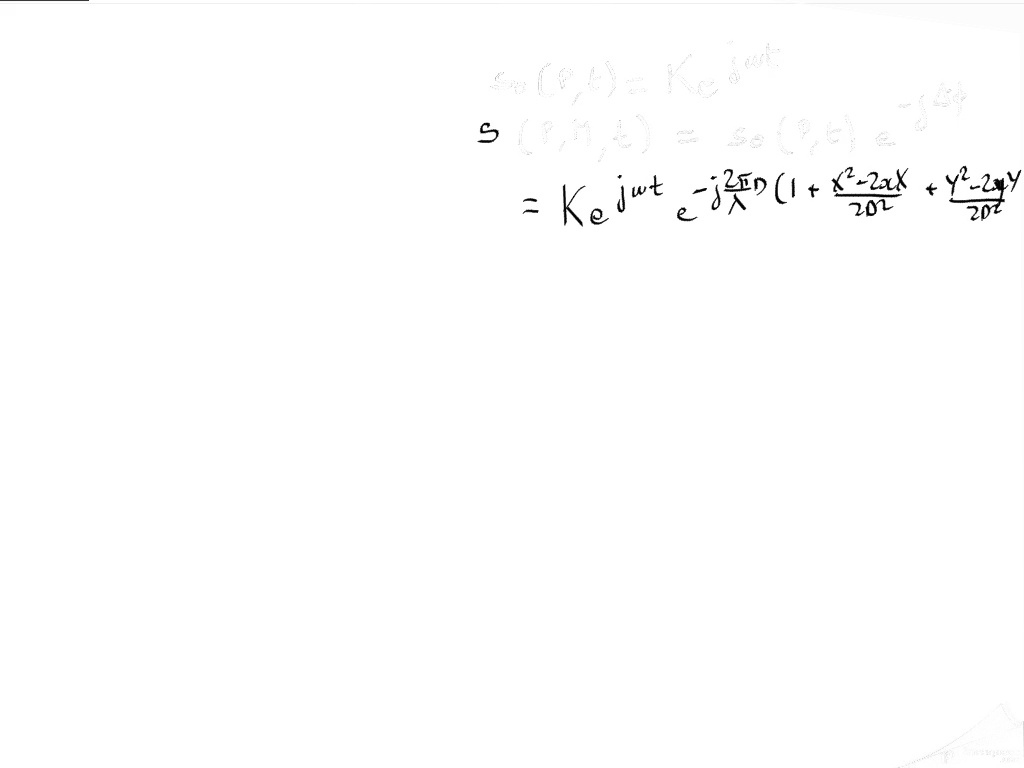 s₀(P,t) = K e^{jωt}
s(P,M,t) = s₀(P,t) e^{-jΔφ}
= K e^{jωt} e^{-j\frac{2π}{λ}D(1 + \frac{X²-2xX}{2D²} + \frac{Y²-2yY}{2D²}}